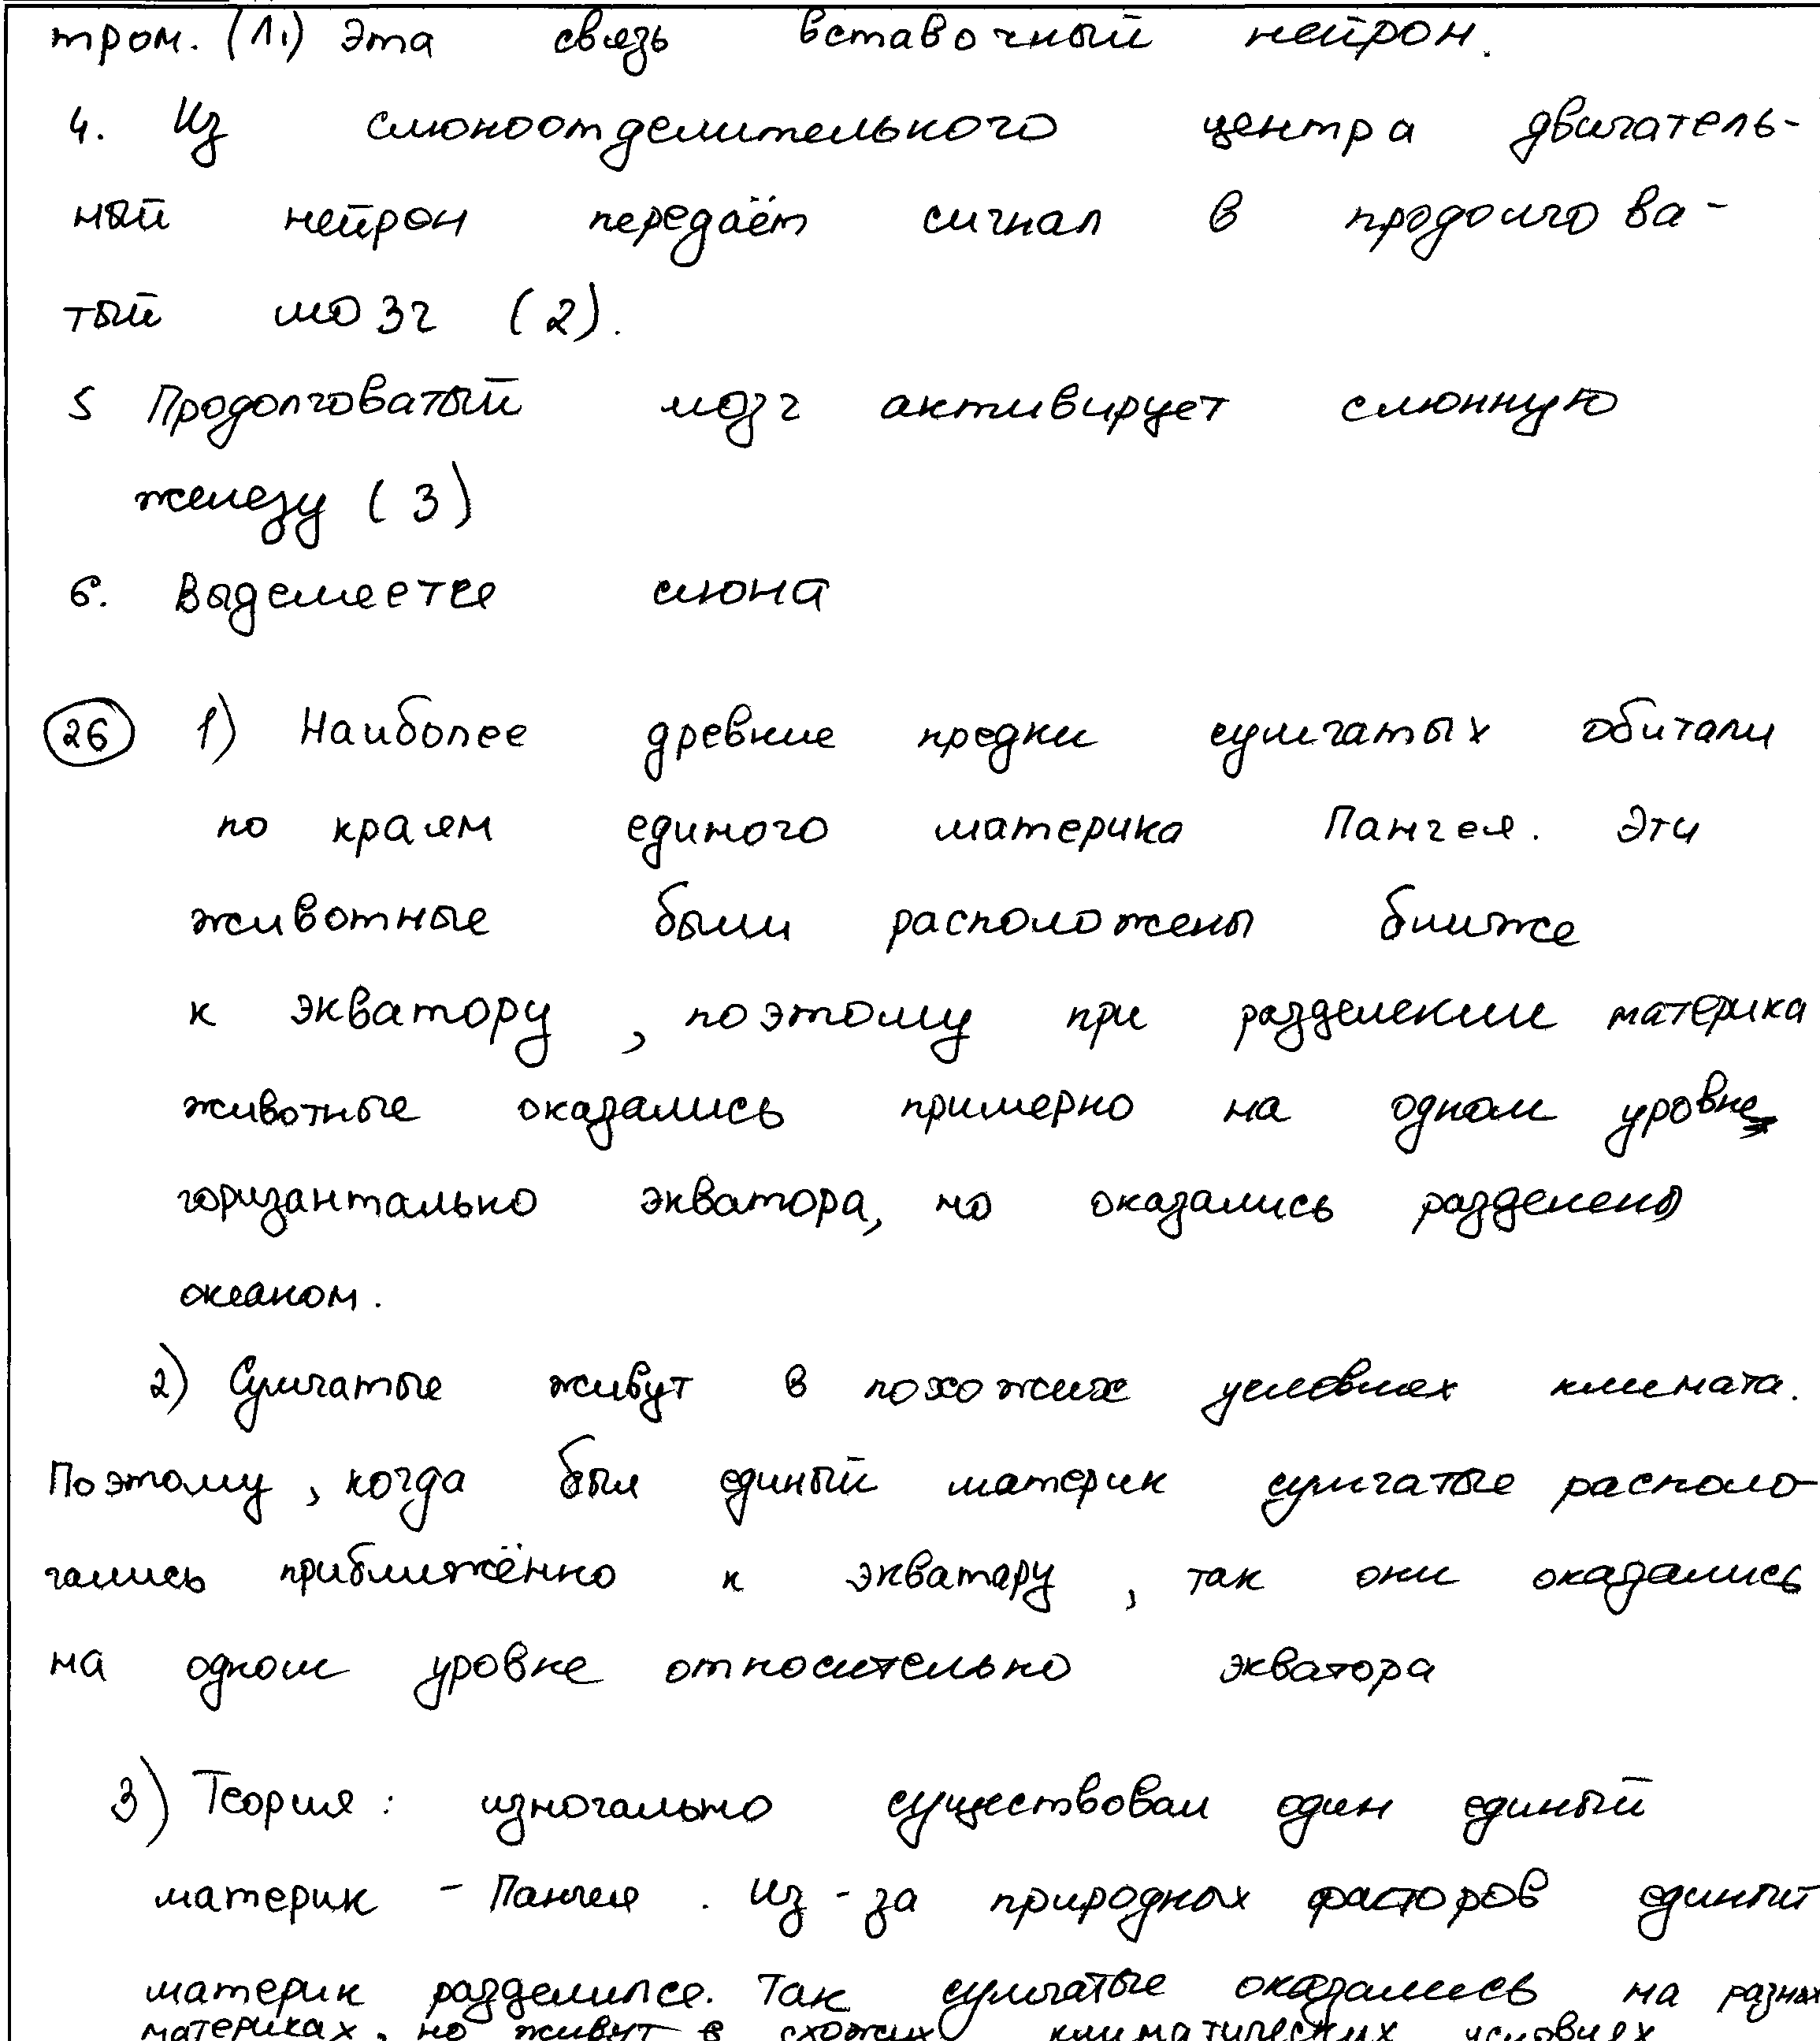 тром. (1.) Эта связь вставочный нейрон.
4. Из слюноотделительного центра двигатель-
ный нейрон передаёт сигнал в продолгова-
тый мозг (2).
5 Продолговатый мозг активирует слюнную
железу (3)
6. Выделяется слюна
26 1) Наиболее древние предки сумчатых обитали
по краям единого материка Пангея. Эти
животные были расположены ближе
к экватору, поэтому при разделении материка
животные оказались примерно на одном уровне
горизантально экватора, но оказались разделены
океаном.
2) Сумчатые живут в похожих условиях климата.
Поэтому, когда был единый материк сумчатые располо-
гались приближённо к экватару, так они оказались
на одном уровне относительно экватора
3) Теория: изночально существовал один единый
материк - Пангея. Из-за природных факторов единый
материк разделился. Так сумчатые оказались на разных
материках, но живут в схожих климатических условиях